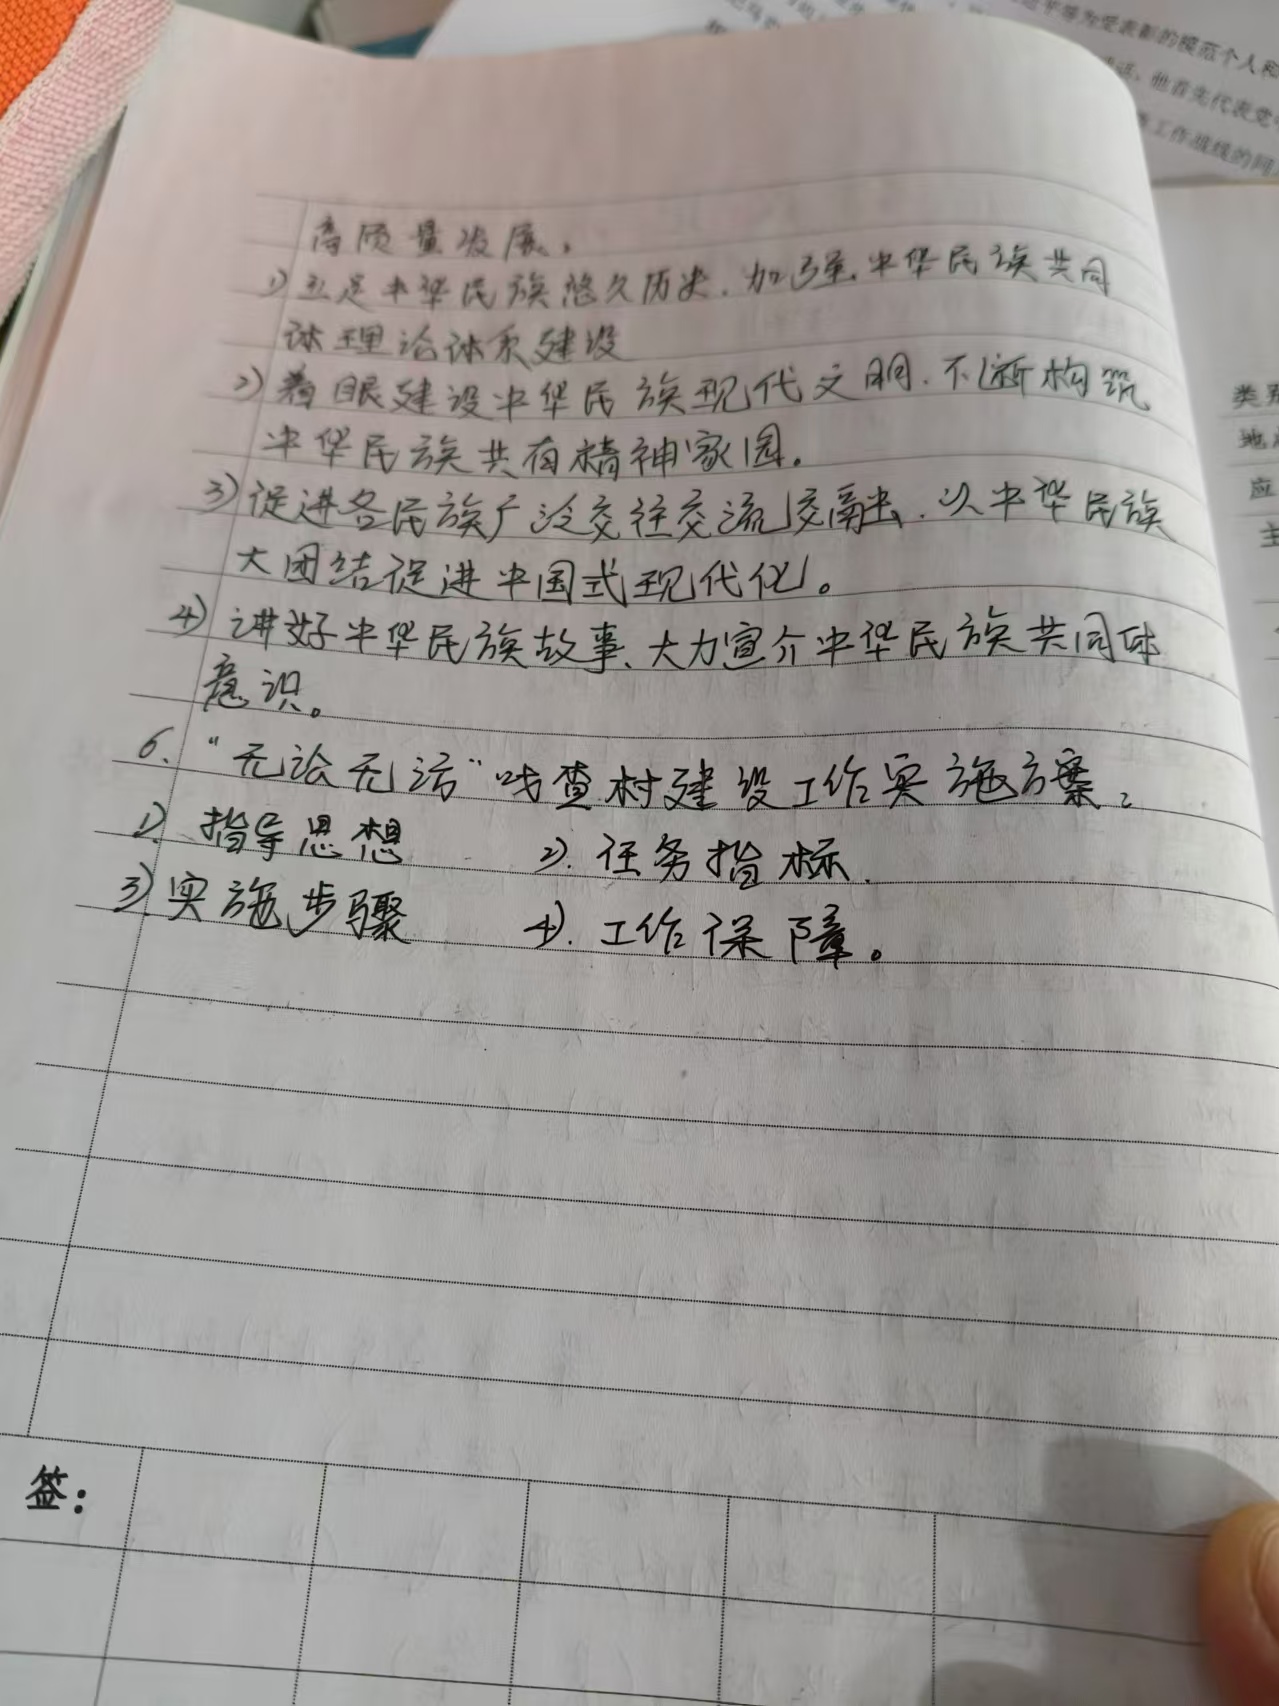 高质量发展。
1) 立足中华民族悠久历史、加强中华民族共同
体理论体系建设
2) 着眼建设中华民族现代文明、不断构筑
中华民族共有精神家园。
3) 促进各民族广泛交往交流交融、以中华民族
大团结促进中国式现代化。
4) 讲好中华民族故事、大力宣介中华民族共同体
意识。
6、“无讼无访”嘎查村建设工作实施方案:
1). 指导思想 2). 任务指标.
3). 实施步骤 4). 工作保障。
签:
平等为受表彰的模范个人和
他首先代表党
工作战线的同
类别
地
应
主